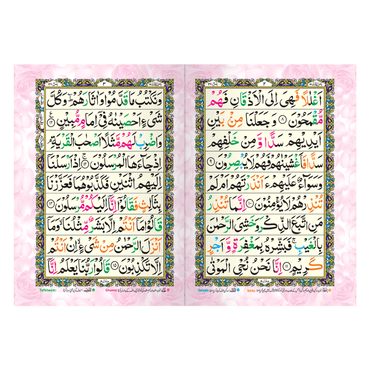 اَغْلٰلًا فَهِىَ اِلَى الْاَذْقَانِ فَهُمْ
مُّقْمَحُوْنَ ۝ وَجَعَلْنَا مِنْۢ بَيْنِ
اَيْدِيْهِمْ سَدًّا وَّمِنْ خَلْفِهِمْ
سَدًّا فَاَغْشَيْنٰهُمْ فَهُمْ لَا يُبْصِرُوْنَ ۝
وَسَوَآءٌ عَلَيْهِمْ ءَاَنْذَرْتَهُمْ اَمْ لَمْ
تُنْذِرْهُمْ لَا يُؤْمِنُوْنَ ۝ اِنَّمَا تُنْذِرُ
مَنِ اتَّبَعَ الذِّكْرَ وَخَشِىَ الرَّحْمٰنَ
بِالْغَيْبِ ۚ فَبَشِّرْهُ بِمَغْفِرَةٍ وَّاَجْرٍ
كَرِيْمٍ ۝ اِنَّا نَحْنُ نُحْىِ الْمَوْتٰى
وَنَكْتُبُ مَا قَدَّمُوْا وَاٰثَارَهُمْ ؕ وَكُلَّ
شَىْءٍ اَحْصَيْنٰهُ فِىْٓ اِمَامٍ مُّبِيْنٍ ۝
وَاضْرِبْ لَهُمْ مَّثَلًا اَصْحٰبَ الْقَرْيَةِ ۘ
اِذْ جَآءَهَا الْمُرْسَلُوْنَ ۝ اِذْ اَرْسَلْنَآ
اِلَيْهِمُ اثْنَيْنِ فَكَذَّبُوْهُمَا فَعَزَّزْنَا
بِثَالِثٍ فَقَالُوْٓا اِنَّآ اِلَيْكُمْ مُّرْسَلُوْنَ ۝
قَالُوْا مَآ اَنْتُمْ اِلَّا بَشَرٌ مِّثْلُنَا ۙ وَمَآ
اَنْزَلَ الرَّحْمٰنُ مِنْ شَىْءٍ ۙ اِنْ اَنْتُمْ
اِلَّا تَكْذِبُوْنَ ۝ قَالُوْا رَبُّنَا يَعْلَمُ اِنَّآ